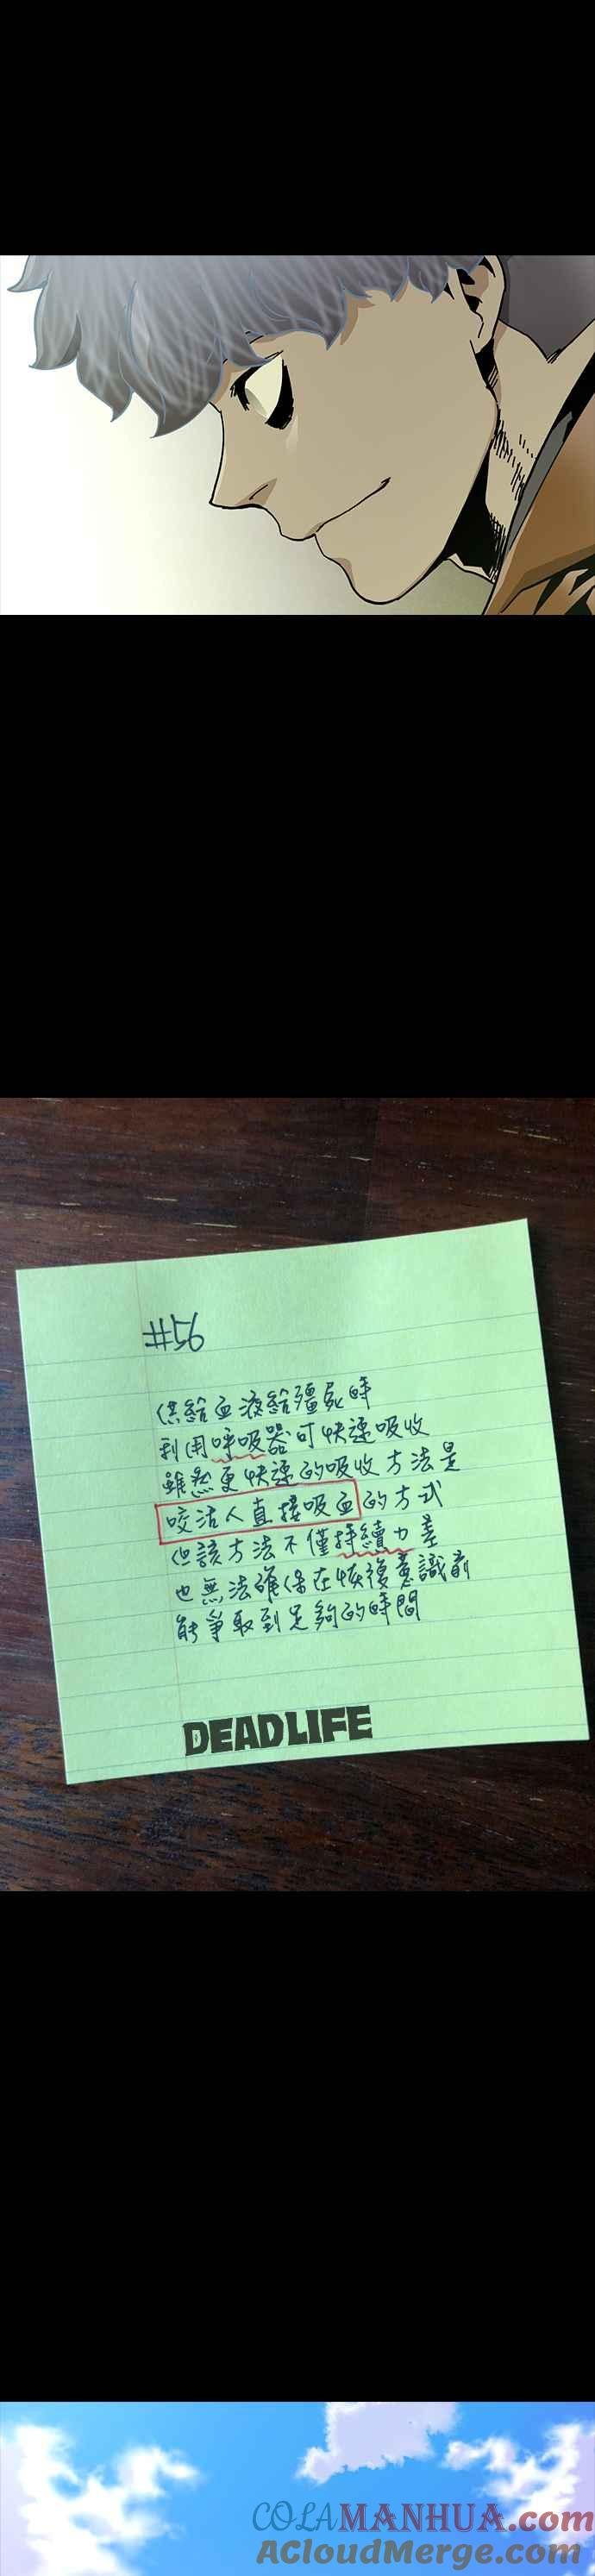 #56
供給血液給殭屍時
利用呼吸器可快速吸收
雖然更快速的吸收方法是
咬活人直接吸血的方式
但該方法不僅持續力差
也無法確保在恢復意識前
能爭取到足夠的時間
DEAD LIFE
COLAMANHUA.com
ACloudMerge.com